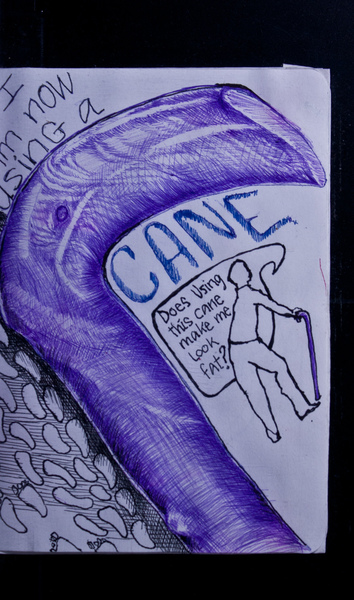 I
m now
using a
CANE
Does Using
this cane
make me
look
fat?